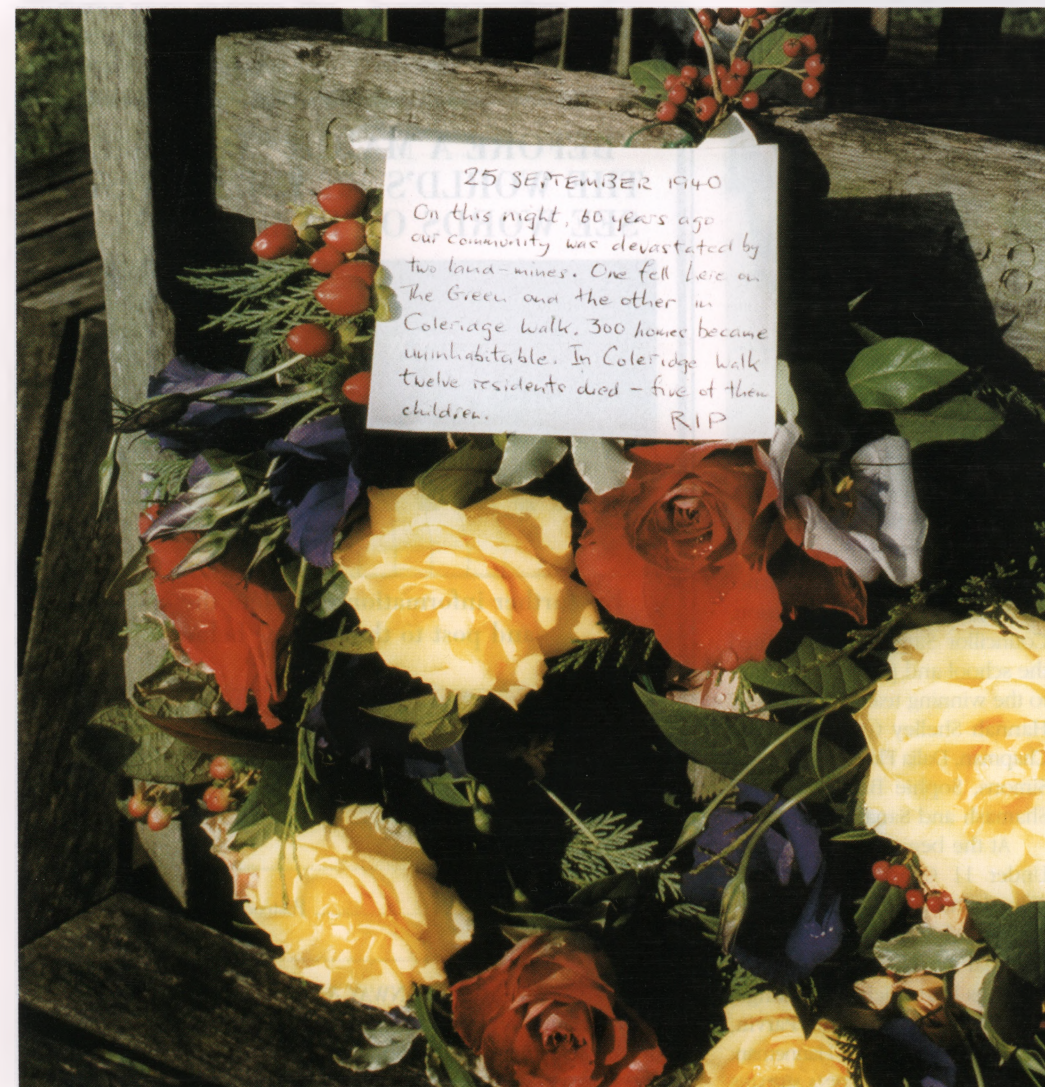 25 SEPTEMBER 1940
On this night, 60 years ago
our community was devastated by
two land-mines. One fell here on
The Green and the other in
Coleridge Walk. 300 homes became
uninhabitable. In Coleridge Walk
twelve residents died – five of them
children. RIP